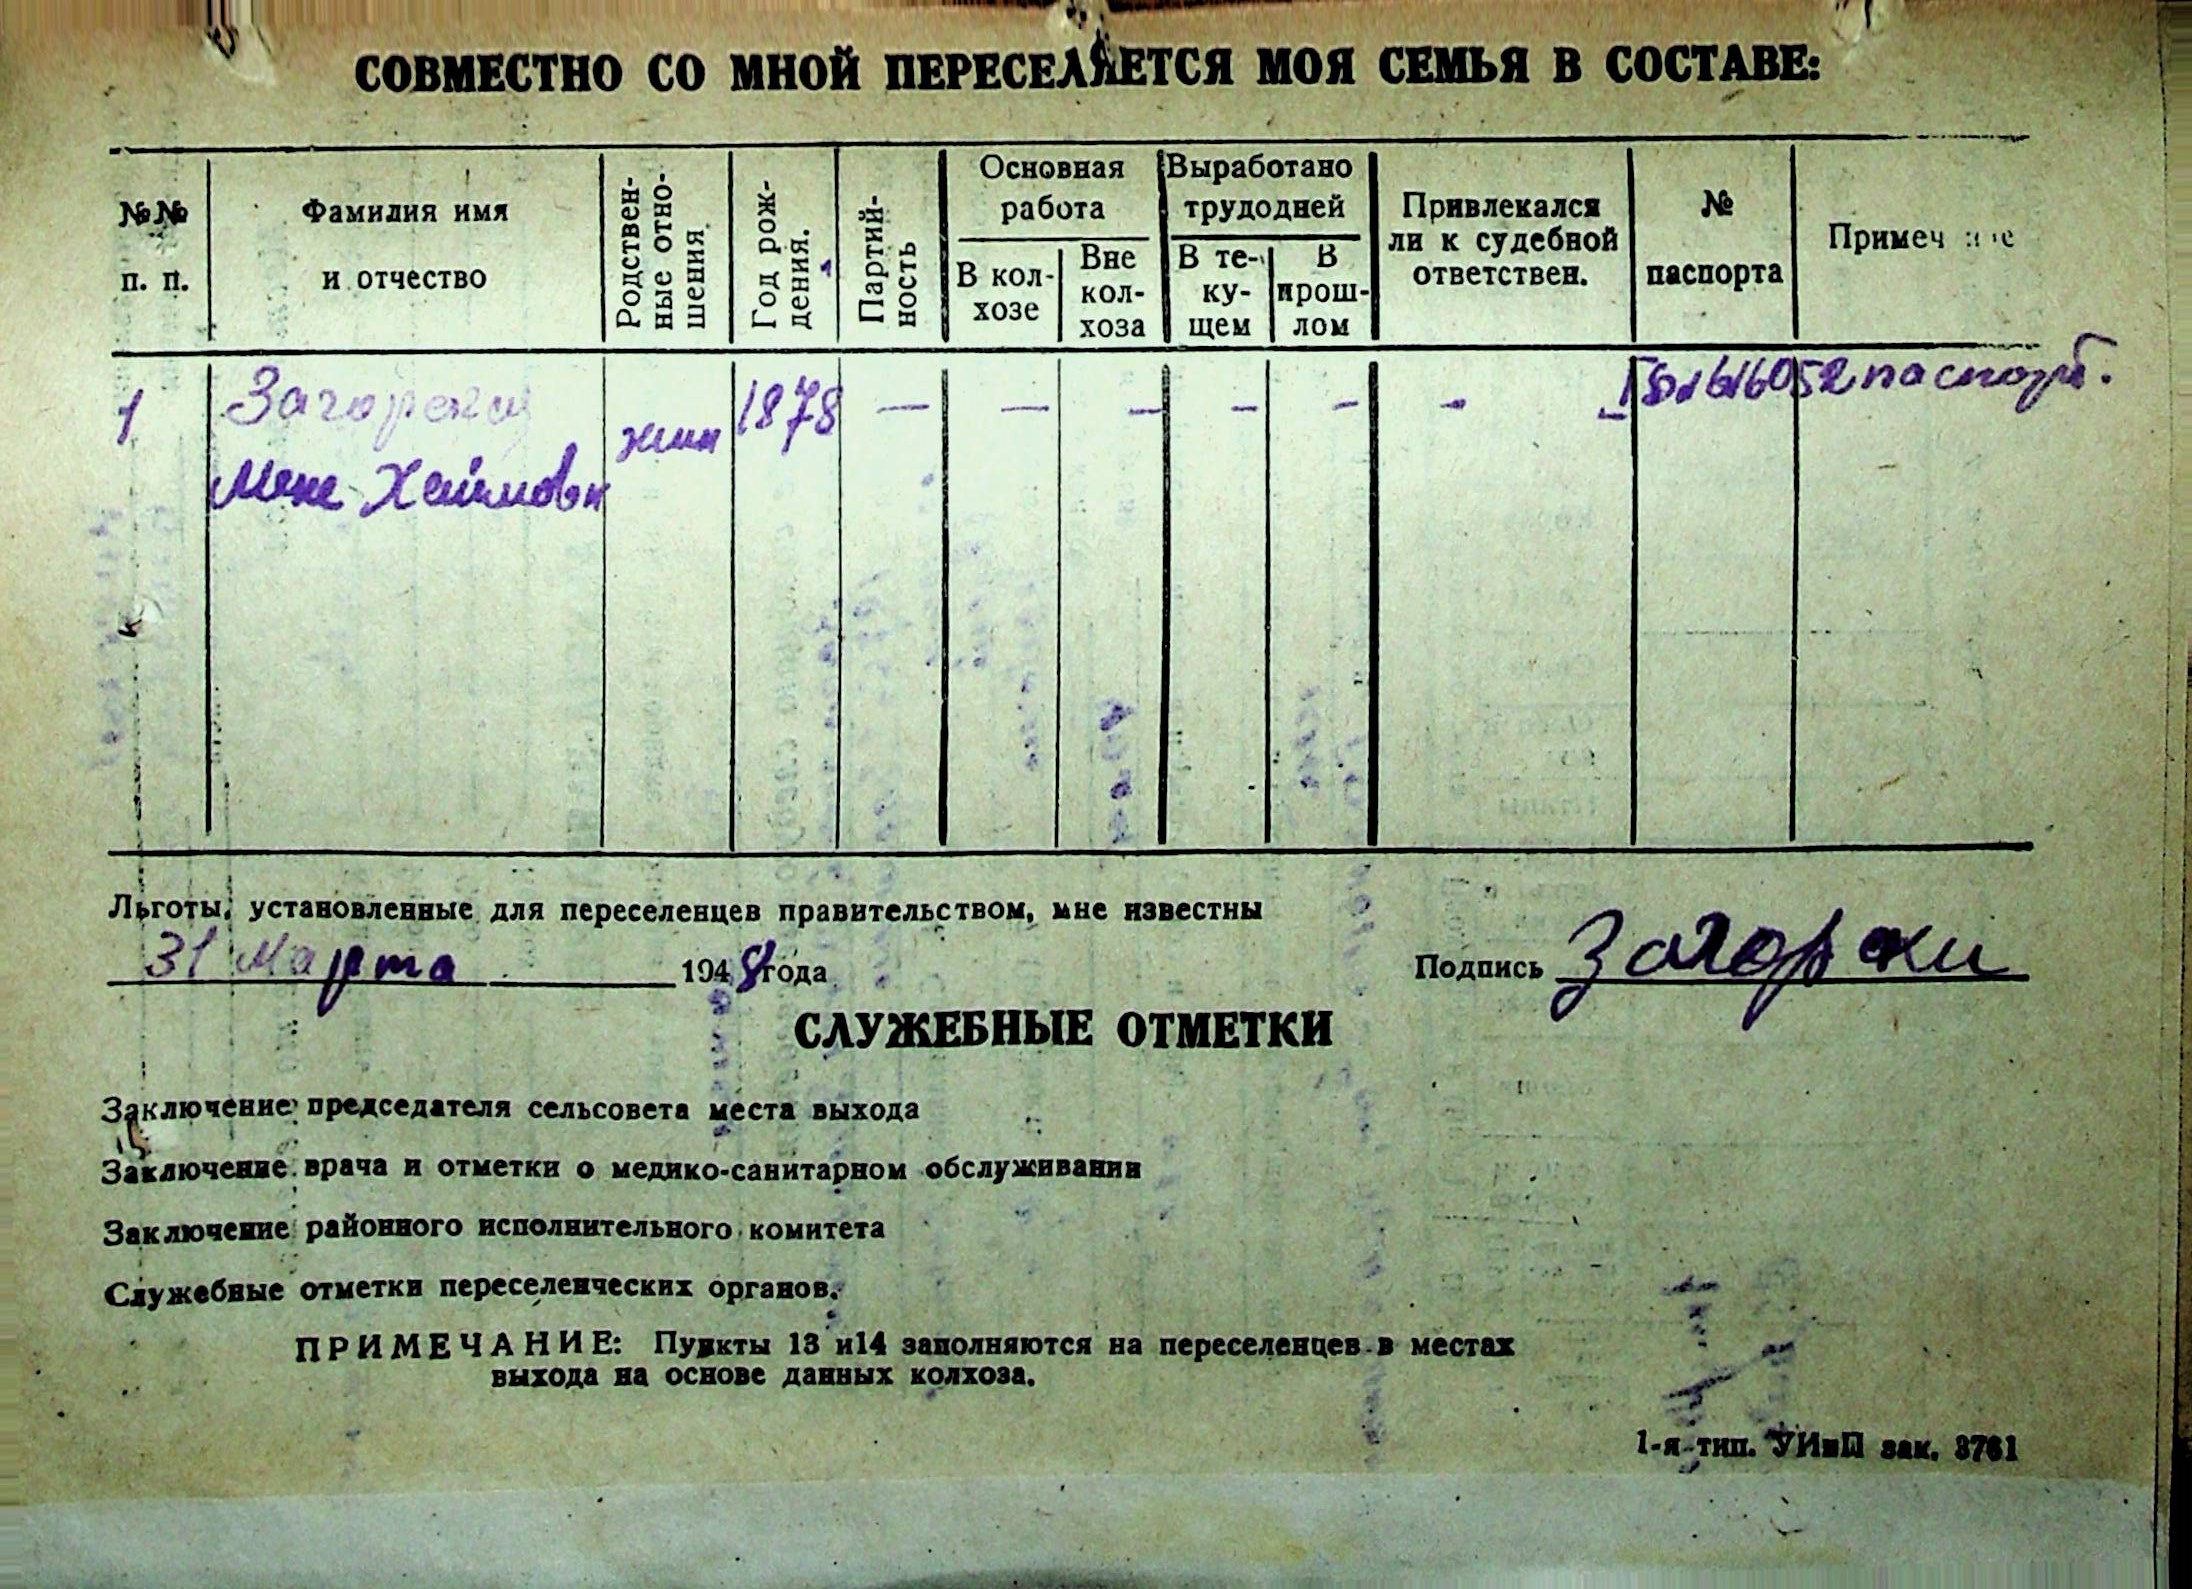 СОВМЕСТНО СО МНОЙ ПЕРЕСЕЛЯЕТСЯ МОЯ СЕМЬЯ В СОСТАВЕ:
№№ п. п.
Фамилия имя и отчество
Родствен-ные отно-шения
Год рож-дения.
Партий-ность
Основная работа
В кол-хозе
Вне кол-хоза
Выработано трудодней
В те-ку-щем
В прош-лом
Привлекался ли к судебной ответствен.
№ паспорта
Примеч
1 Загорски 1878 — — — — — — паспорт.
Хаимовн
Льготы, установленные для переселенцев правительством, мне известны
31 Марта 1948 года
Подпись Загорски
СЛУЖЕБНЫЕ ОТМЕТКИ
Заключение председателя сельсовета места выхода
Заключение врача и отметки о медико-санитарном обслуживании
Заключение районного исполнительного комитета
Служебные отметки переселенческих органов.
ПРИМЕЧАНИЕ: Пункты 13 и14 заполняются на переселенцев в местах
выхода на основе данных колхоза.
1-я тип. УИиП зак. 3761